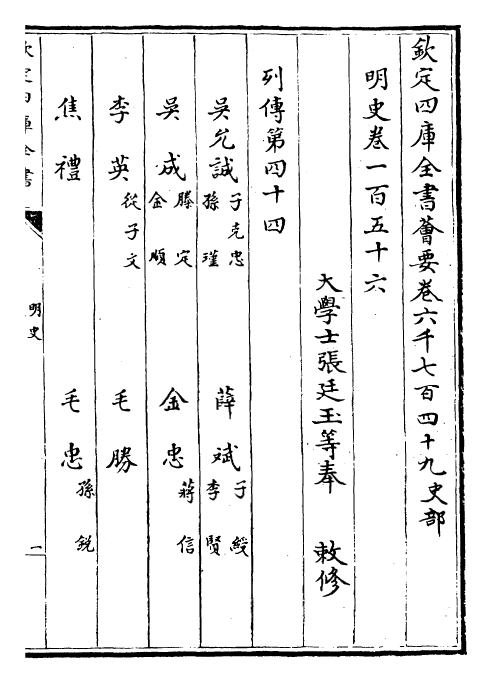 欽定四庫全書薈要卷六千七百四十九史部
明史卷一百五十六
大學士張廷玉等奉　敕修
列傳第四十四
吳允誠　子克忠　孫瑾　薛斌　子綬　李賢
吳成　滕定　金順　金忠　蔣信
李英　從子文　毛勝
焦禮　毛忠　孫銳
欽定四庫全書
明史
一